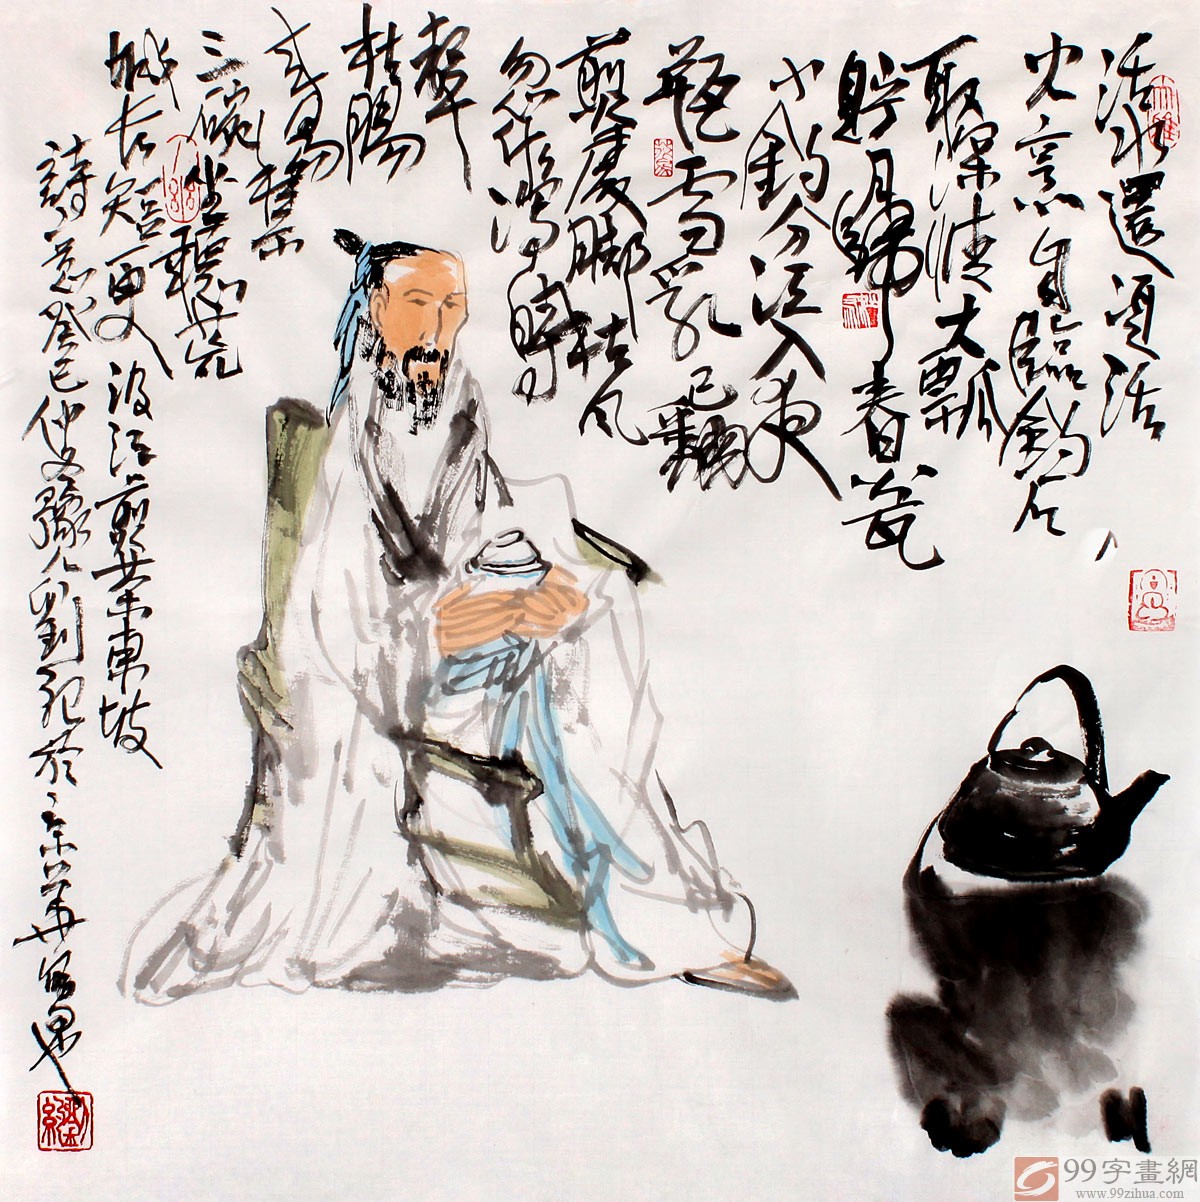 活水還須活
火烹自臨釣石
取深清大瓢
貯月歸春瓮
小杓分江入夜
瓶雪乳已翻
煎處腳松風
忽作瀉時
聲
枯腸
未易禁
三碗坐聽荒
城長短更 汲江煎茶東坡
詩意癸巳仲夏豫人劉紀於京華
99字畫網
www.99zihua.com